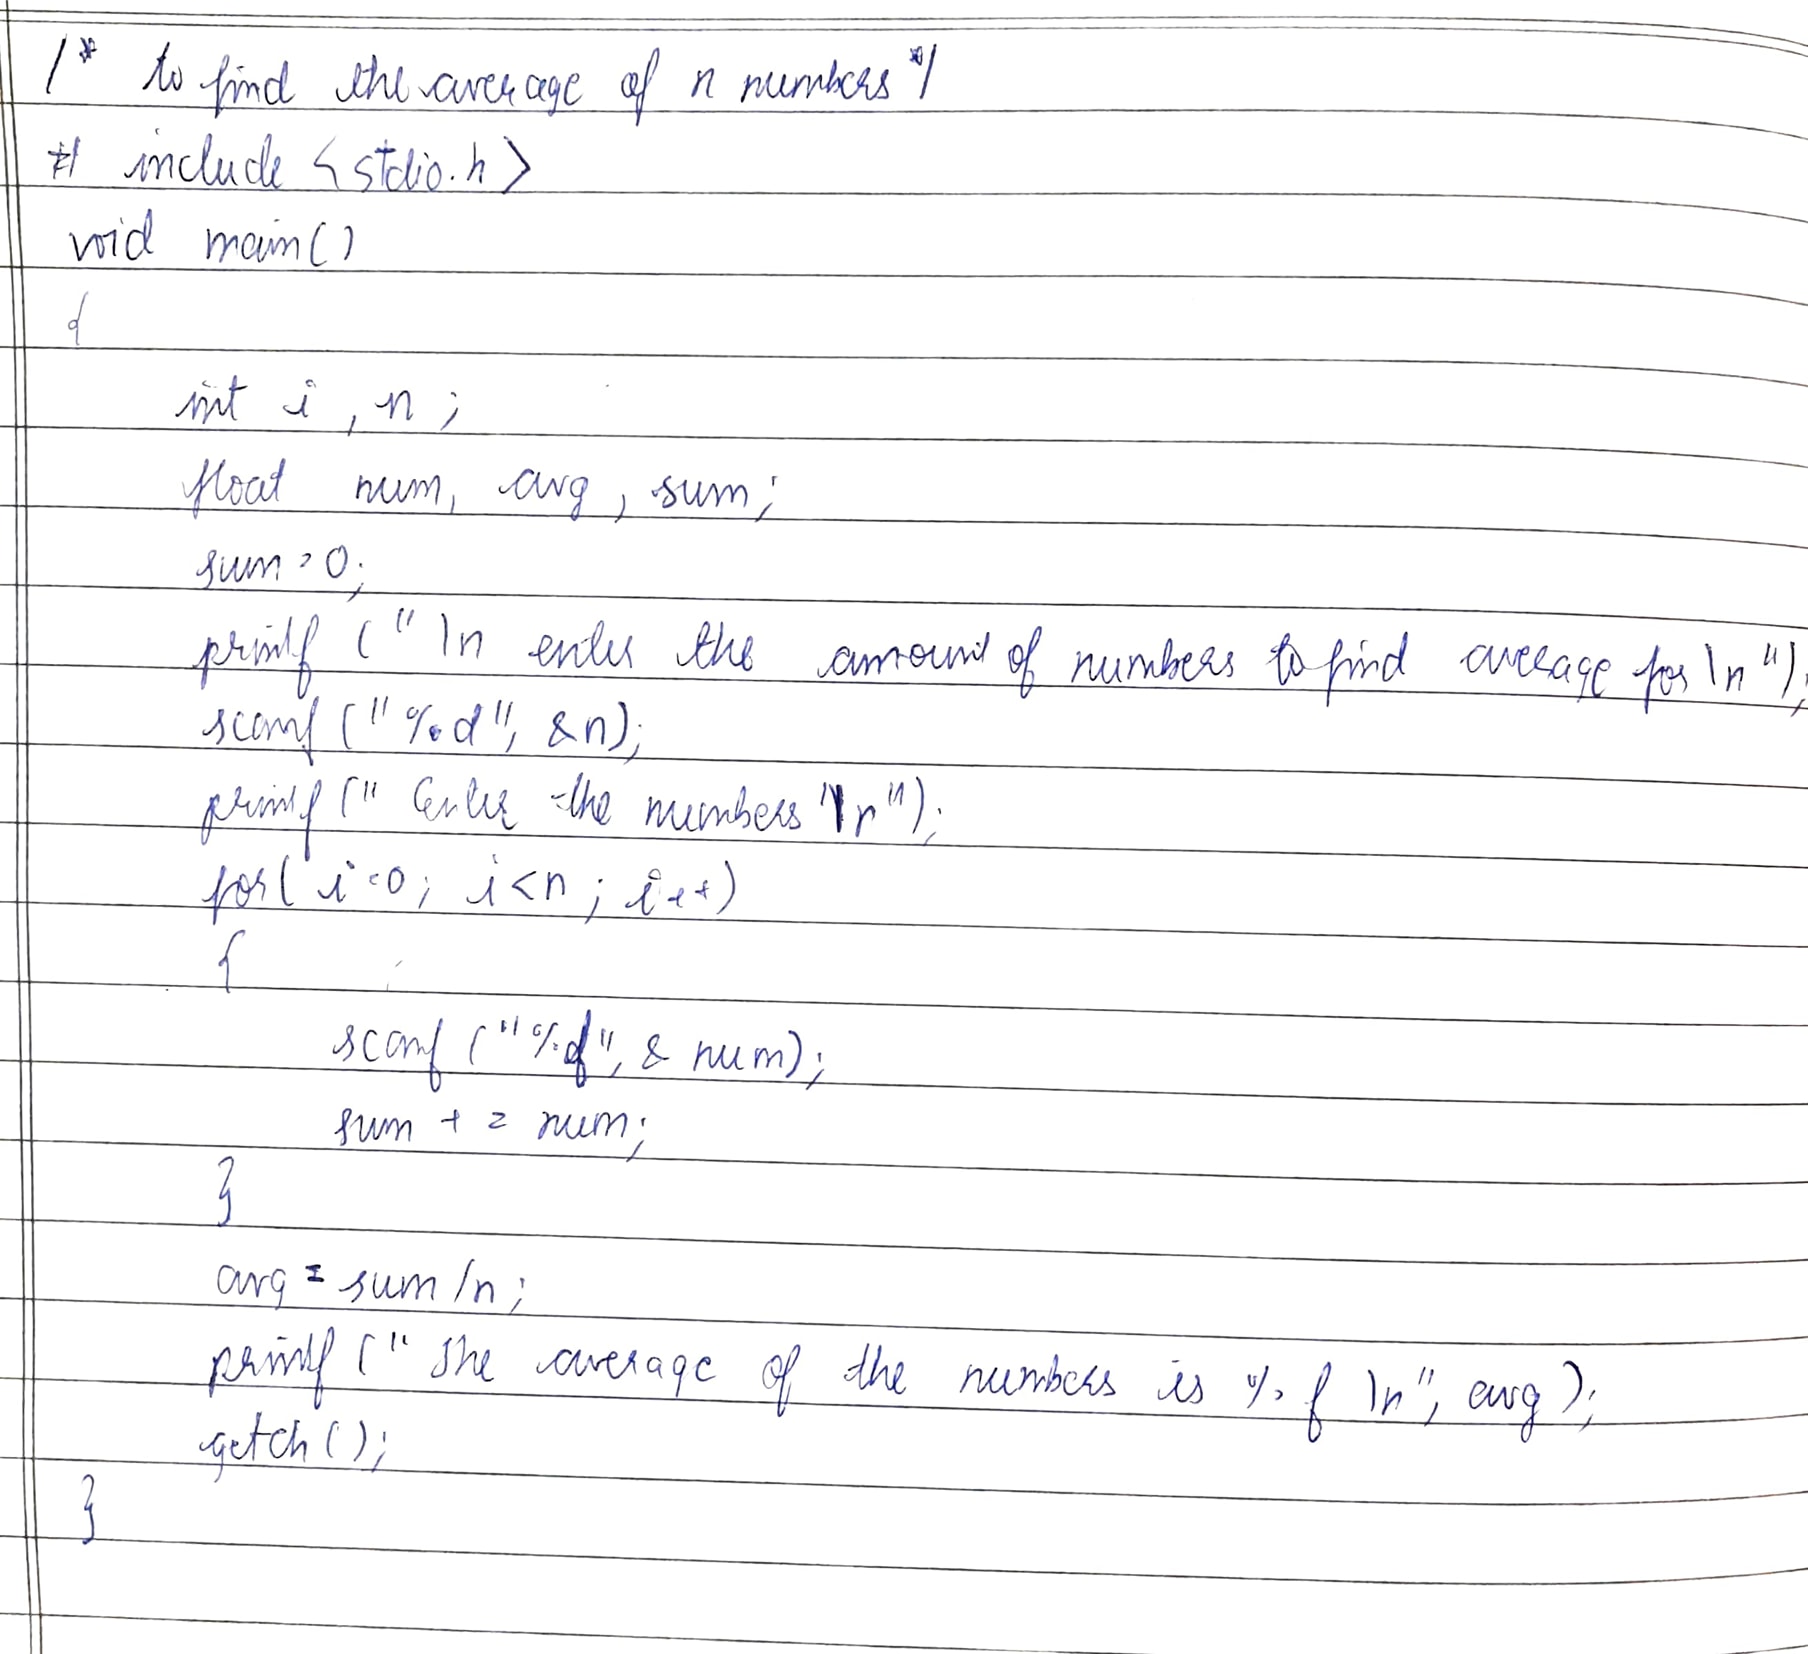 /* to find the average of n numbers */
# include <stdio.h>
void main()
{
int i, n;
float num, avg, sum;
sum = 0;
printf ("\n enter the amount of numbers to find average for \n");
scanf ("%d", &n);
printf (" Enter the numbers \n");
for( i=0; i<n; i++)
{
scanf ("%f", & num);
sum + = num;
}
avg = sum /n;
printf (" The average of the numbers is %f \n", avg);
getch();
}